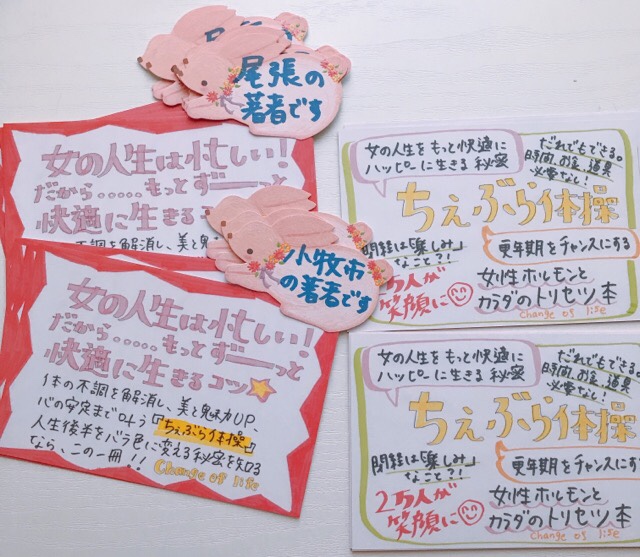 尾張の
著者です
女の人生は忙しい!
だから.....もっとずーーっと
快適に生きるコ
不調を解消し、美と魅
小牧市
の著者です
女の人生は忙しい!
だから.....もっとずーーっと
快適に生きるコツ
体の不調を解消し、美と魅力UP、
心の安定まで叶う『ちぇぶら体操』
人生後半をバラ色に変える秘密を知る
なら、この一冊!!
Change of life
女の人生をもっと快適に
ハッピーに生きる秘密
だれでもできる。
時間、お金、道具
必要なし!
ちぇぶら体操
閉経は「楽しみ」
なこと?!
更年期をチャンスにする
万人が
笑顔に
女性ホルモンと
カラダのトリセツ本
Change of life
女の人生をもっと快適に
ハッピーに生きる秘密
だれでもできる。
時間、お金、道具
必要なし!
ちぇぶら体操
閉経は「楽しみ」
なこと?!
更年期をチャンスにす
2万人が
笑顔に
女性ホルモンと
カラダのトリセツ本
Change of life